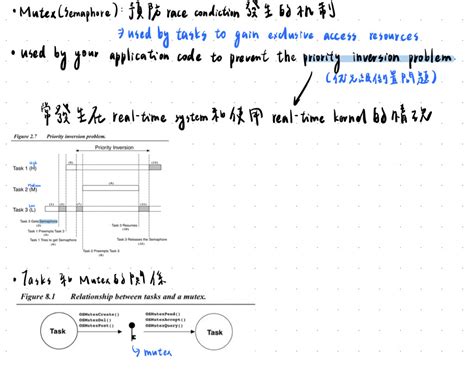 • Mutex(Semaphore): 預防 race condiction 發生的機制
→ used by tasks to gain exclusive access resources
• used by your application code to prevent the priority inversion problem
(優先級倒置問題)
常發生在 real-time system 和使用 real-time kernel 的情況
Figure 2.7 Priority inversion problem.
Priority Inversion
Task 1 (H) High
Task 2 (M) Medium
Task 3 (L) Low
Task 3 Gets Semaphore
Task 1 Preempts Task 3
Task 1 Tries to get Semaphore
Task 2 Preempts Task 3
Task 3 Resumes
Task 3 Releases the Semaphore
• Tasks 和 Mutex 的關係
Figure 8.1 Relationship between tasks and a mutex.
OSMutexCreate() OSMutexPend()
OSMutexDel() OSMutexAccept()
OSMutexPost() OSMutexQuery()
Task Task
→ mutex